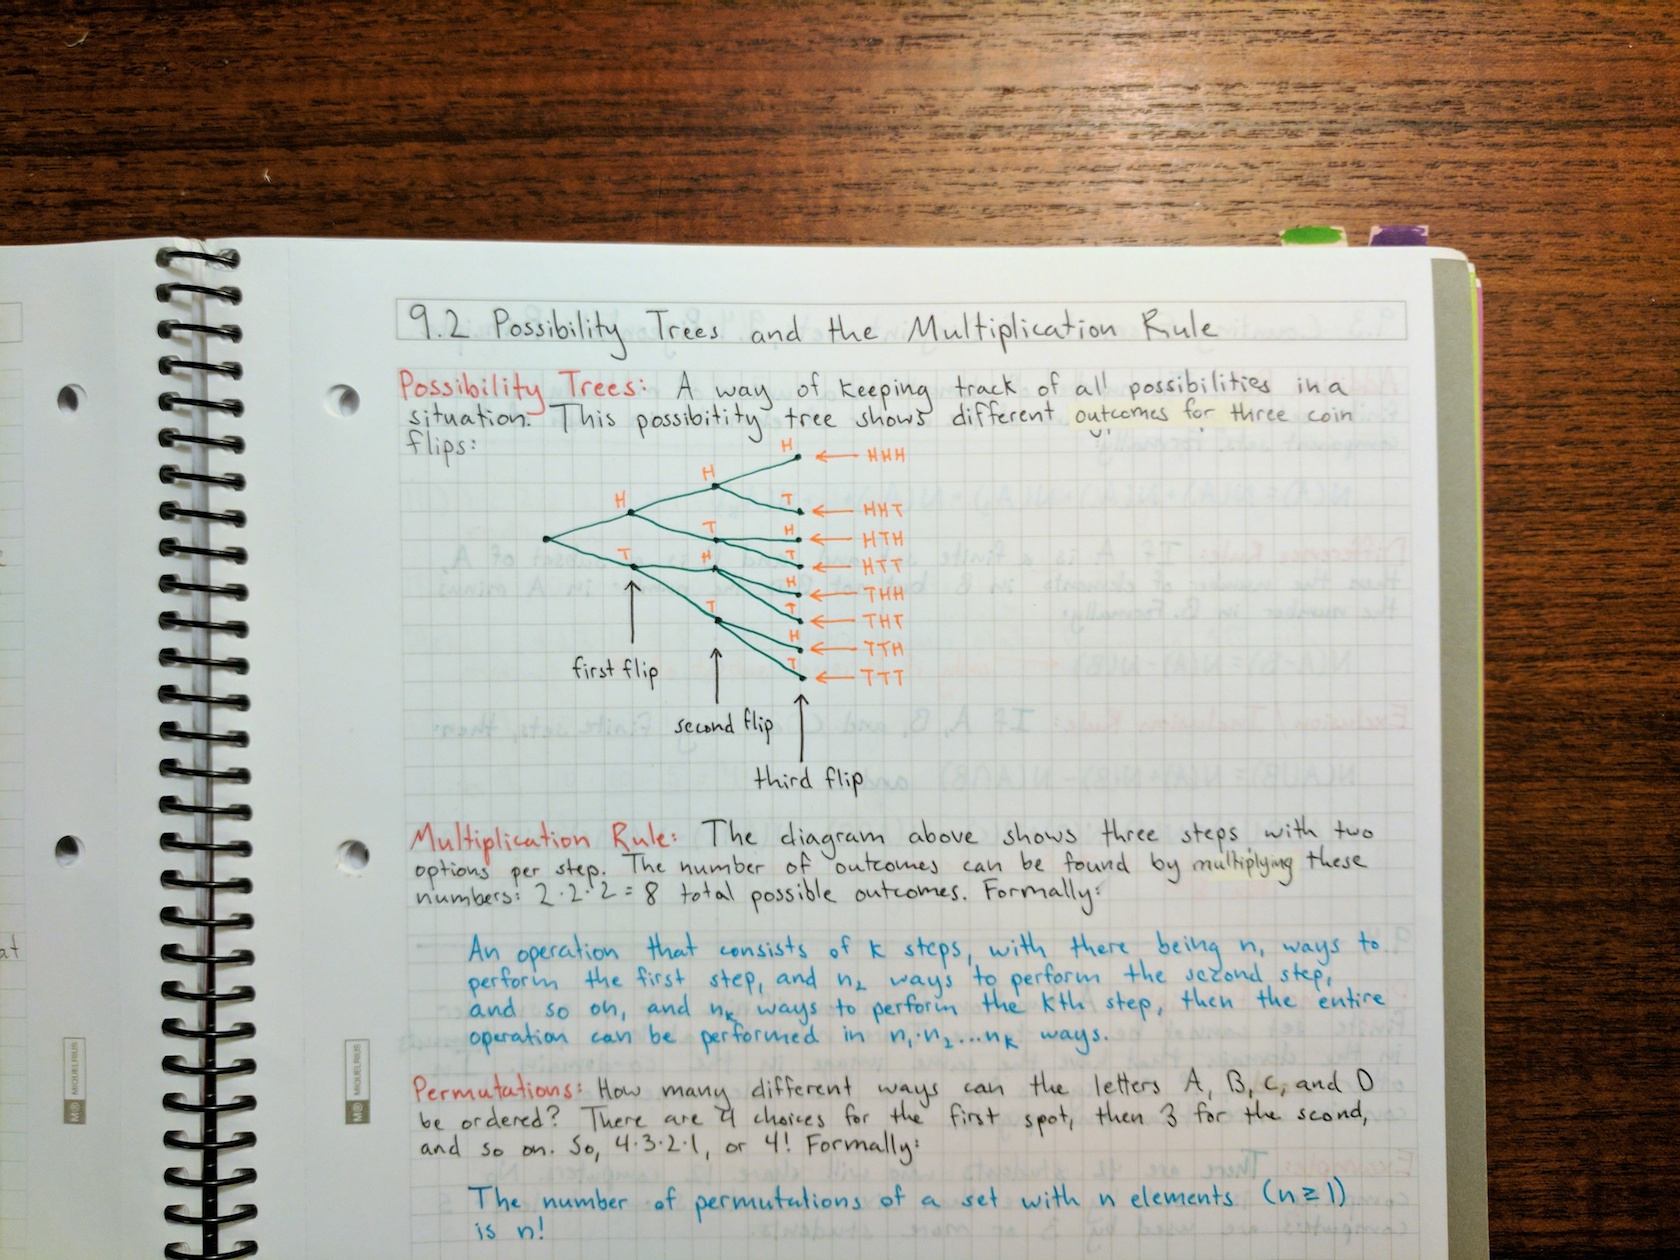 9.2 Possibility Trees and the Multiplication Rule
Possibility Trees: A way of keeping track of all possibilities in a
situation. This possibility tree shows different outcomes for three coin
flips:
H
H
H
T
T
H
T
T
H
H
T
T
H
T
HHH
HHT
HTH
HTT
THH
THT
TTH
TTT
first flip
second flip
third flip
Multiplication Rule: The diagram above shows three steps with two
options per step. The number of outcomes can be found by multiplying these
numbers: 2·2·2 = 8 total possible outcomes. Formally:
An operation that consists of k steps, with there being n₁ ways to
perform the first step, and n₂ ways to perform the second step,
and so on, and nₖ ways to perform the kth step, then the entire
operation can be performed in n₁·n₂...nₖ ways.
Permutations: How many different ways can the letters A, B, C, and D
be ordered? There are 4 choices for the first spot, then 3 for the scond,
and so on. So, 4·3·2·1, or 4! Formally:
The number of permutations of a set with n elements (n ≥ 1)
is n!
at
MIQUELRIUS
MIQUELRIUS